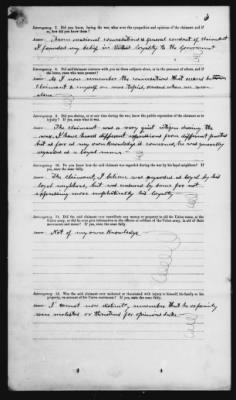 3
Interrogatory 7. Did you know, during the war, of the sympathies and opinions of the claimant and if so, how did you know them?
Ans— From
conversations & general conduct of claimant
I founded my belief in his loyalty to the Government
Interrogatory 8. Did the said claimant converse with you on these subjects alone, or in the presence of others, and if the latter, when was present?
Ans— As I now remember the conversations that occured between
claimant & myself on
when we were
alone—
Interrogatory 9. Did you, during, or at any time during the war, know the public reputation of the claimant as to loyalty? If yes, state what it was.
Ans— The claimant was a very quiet citizen during the
war. I have heard different expressions from different parties
but as far as my own knowledge is concerned, he was generally
regarded as a loyal man—
Interrogatory 10. Do you know how the said claimant was regarded during the war by his loyal neighbors? If yes, state the same fully.
Ans— The claimant, I believe was regarded as loyal by his
loyal neighbors, but was
by some for not
expressing more emphatically his loyalty—
Interrogatory 11. Did the said claimant ever contribute any money or property to aid the Union army, or the Union
army, or did he ever give information to the officers or soldiers of the United States army, in aid of their
movement and cause? If yes, state the same fully.
Ans— Not of my own knowledge.
Interrogatory 12. Was the said claimant ever molested or threatened with injury to himself, his family or his
property, on account of his Union sentiments? If yes, state the same fully.
Ans— I cannot now distinctly remember that he or family
was molested or threatened for opinions sake—